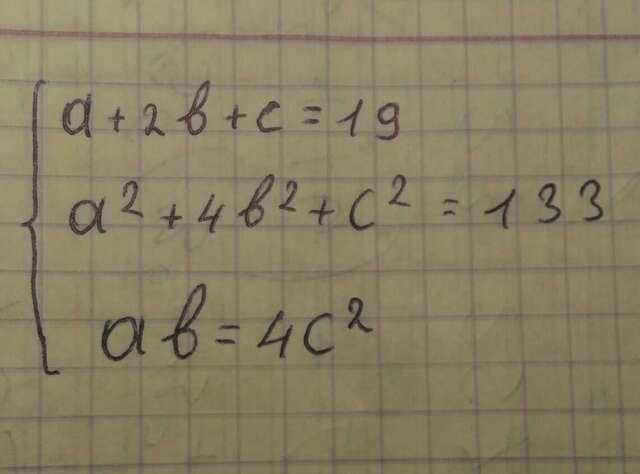 a + 2b + c = 19
a² + 4b² + c² = 133
ab = 4c²